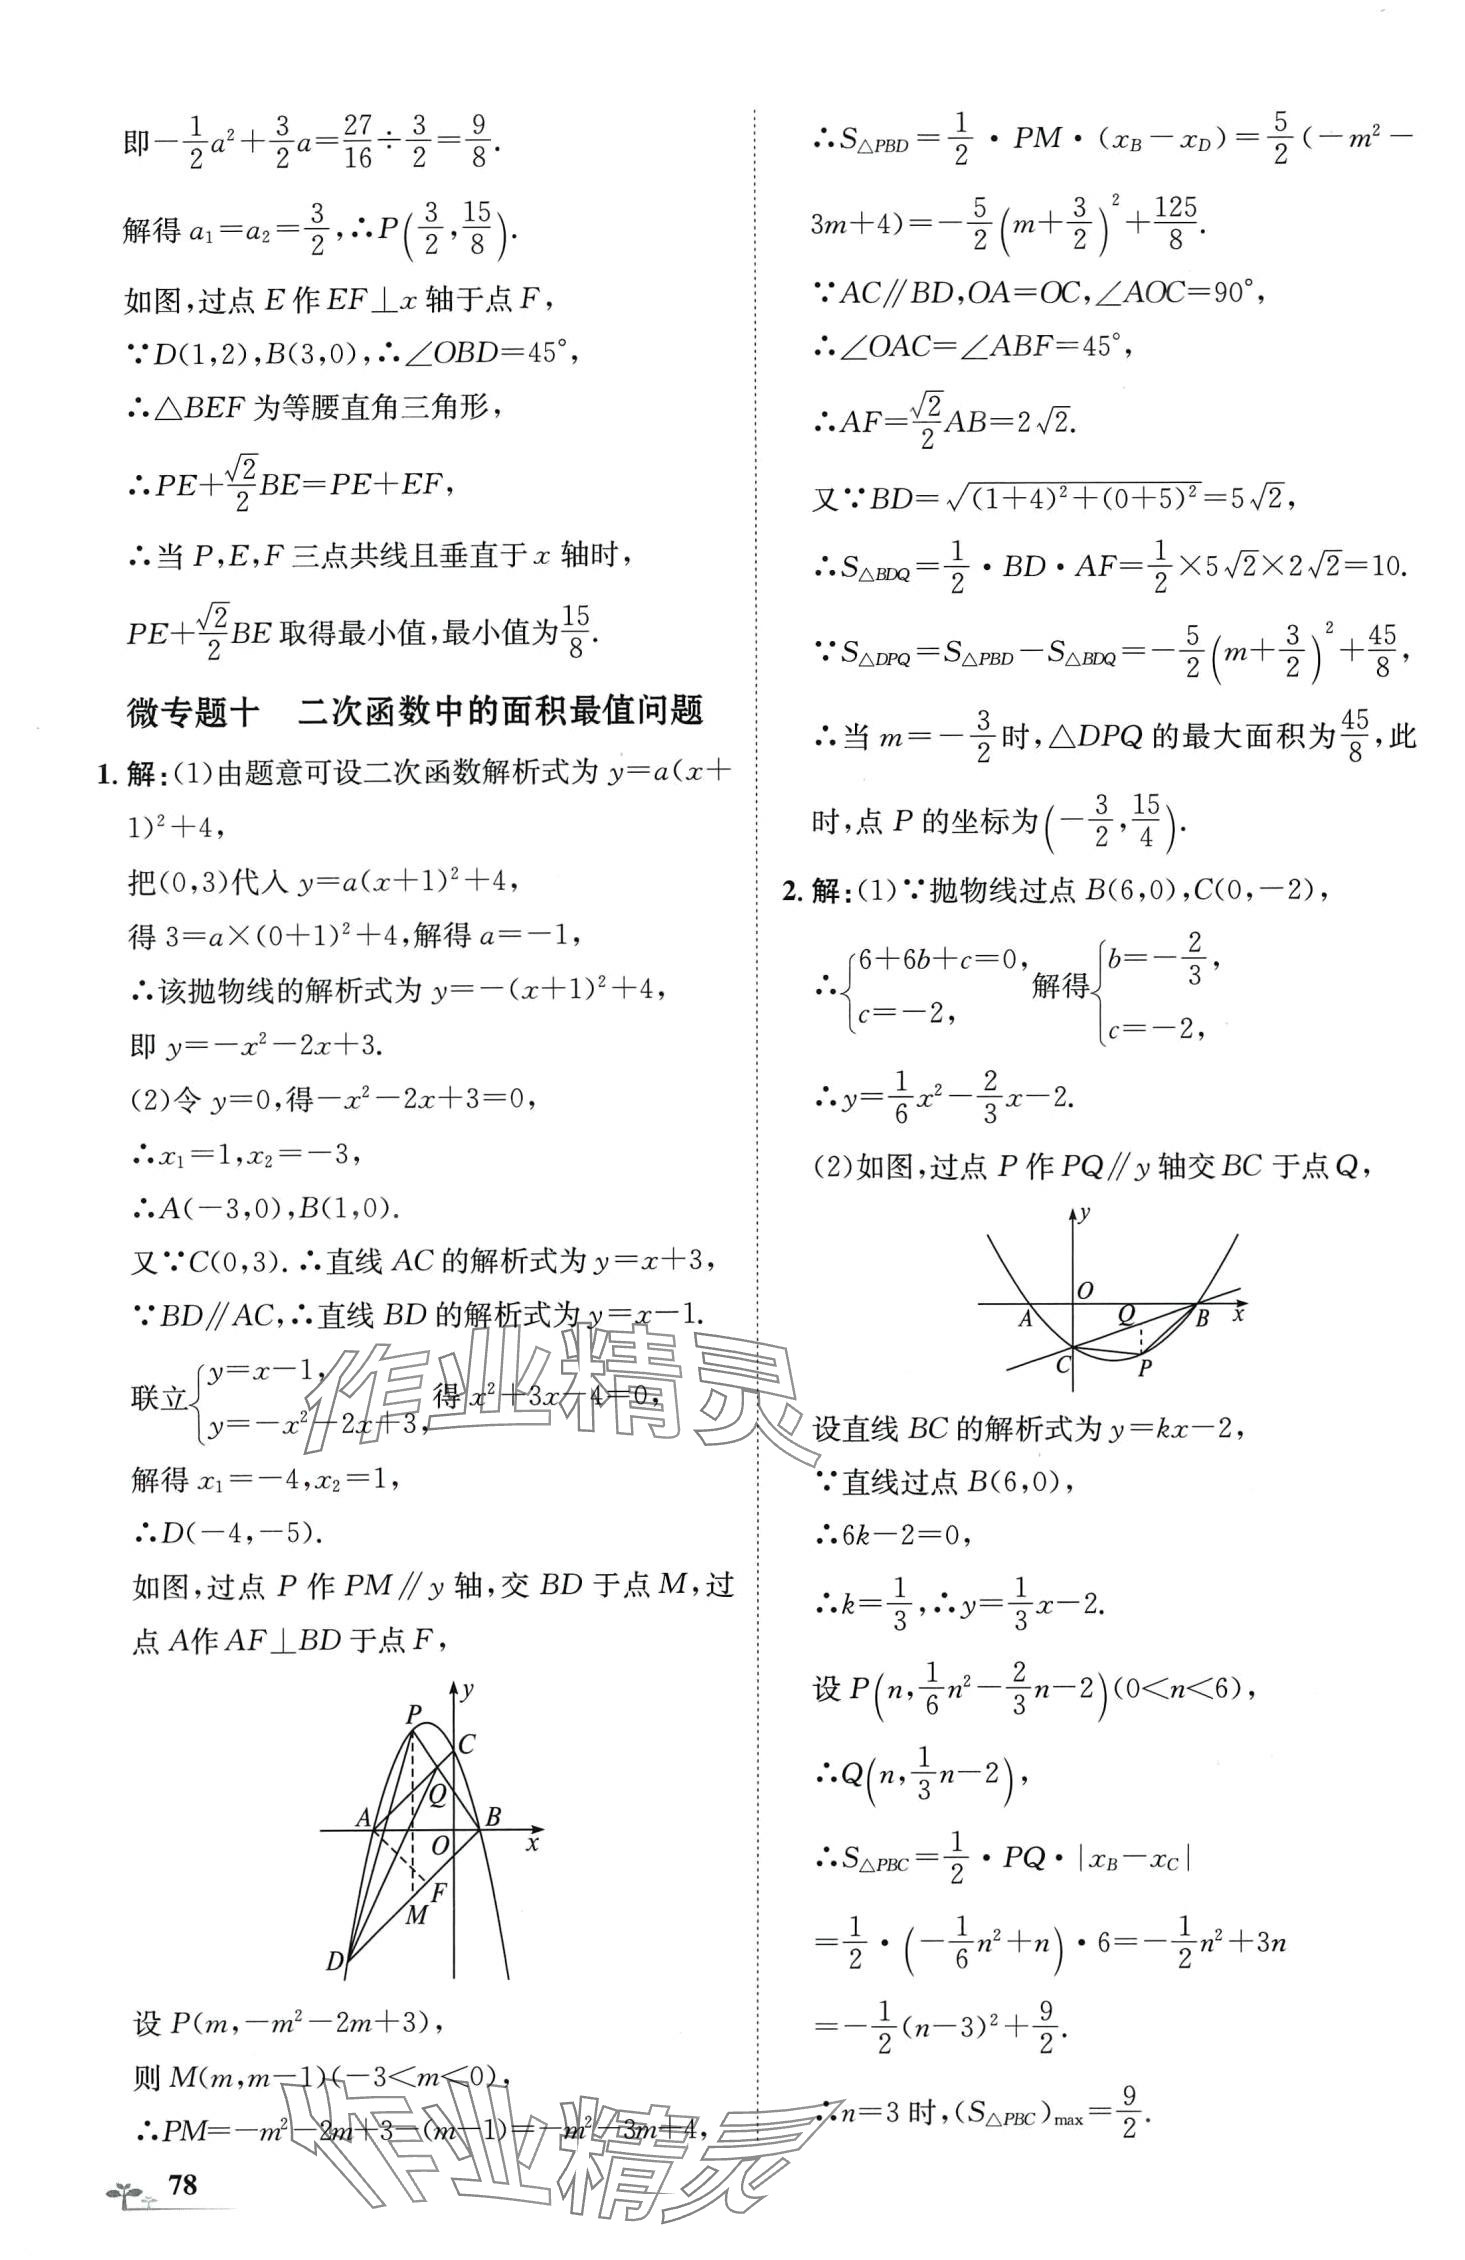 即-\frac{1}{2}a²+\frac{3}{2}a=\frac{27}{16}÷\frac{3}{2}=\frac{9}{8}.
解得 a₁=a₂=\frac{3}{2},∴P(\frac{3}{2},\frac{15}{8}).
如图,过点 E 作 EF⊥x 轴于点 F,
∵D(1,2),B(3,0),∴∠OBD=45°,
∴△BEF 为等腰直角三角形,
∴PE+\frac{√2}{2}BE=PE+EF,
∴当 P,E,F 三点共线且垂直于 x 轴时,
PE+\frac{√2}{2}BE 取得最小值,最小值为\frac{15}{8}.
微专题十 二次函数中的面积最值问题
1. 解:(1)由题意可设二次函数解析式为 y=a(x+
1)²+4,
把(0,3)代入 y=a(x+1)²+4,
得 3=a×(0+1)²+4,解得 a=-1,
∴该抛物线的解析式为 y=-(x+1)²+4,
即 y=-x²-2x+3.
(2)令 y=0,得-x²-2x+3=0,
∴x₁=1,x₂=-3,
∴A(-3,0),B(1,0).
又∵C(0,3).∴直线 AC 的解析式为 y=x+3,
∵BD∥AC,∴直线 BD 的解析式为 y=x-1.
联立{y=x-1, y=-x²-2x+3,得 x²+3x-4=0,
解得 x₁=-4,x₂=1,
∴D(-4,-5).
如图,过点 P 作 PM∥y 轴,交 BD 于点 M,过
点 A作 AF⊥BD 于点 F,
y
P
C
Q
A
B
O
x
F
M
D
设 P(m,-m²-2m+3),
则 M(m,m-1)(-3<m<0),
∴PM=-m²-2m+3-(m-1)=-m²-3m+4,
78
∴S△PBD=\frac{1}{2}·PM·(x_B-x_D)=\frac{5}{2}(-m²-
3m+4)=-\frac{5}{2}(m+\frac{3}{2})²+\frac{125}{8}.
∵AC∥BD,OA=OC,∠AOC=90°,
∴∠OAC=∠ABF=45°,
∴AF=\frac{√2}{2}AB=2√2.
又∵BD=√((1+4)²+(0+5)²)=5√2,
∴S△BDQ=\frac{1}{2}·BD·AF=\frac{1}{2}×5√2×2√2=10.
∵S△DPQ=S△PBD-S△BDQ=-\frac{5}{2}(m+\frac{3}{2})²+\frac{45}{8},
∴当 m=-\frac{3}{2}时,△DPQ 的最大面积为\frac{45}{8},此
时,点 P 的坐标为(-\frac{3}{2},\frac{15}{4}).
2. 解:(1)∵抛物线过点 B(6,0),C(0,-2),
∴{6+6b+c=0, c=-2, 解得{b=-\frac{2}{3}, c=-2,
∴y=\frac{1}{6}x²-\frac{2}{3}x-2.
(2)如图,过点 P 作 PQ∥y 轴交 BC 于点 Q,
y
O
A
Q
B
x
C
P
设直线 BC 的解析式为 y=kx-2,
∵直线过点 B(6,0),
∴6k-2=0,
∴k=\frac{1}{3},∴y=\frac{1}{3}x-2.
设 P(n,\frac{1}{6}n²-\frac{2}{3}n-2)(0<n<6),
∴Q(n,\frac{1}{3}n-2),
∴S△PBC=\frac{1}{2}·PQ·|x_B-x_C|
=\frac{1}{2}·(-\frac{1}{6}n²+n)·6=-\frac{1}{2}n²+3n
=-\frac{1}{2}(n-3)²+\frac{9}{2}.
∴n=3 时,(S△PBC)max=\frac{9}{2}.
作业精灵
作业精灵